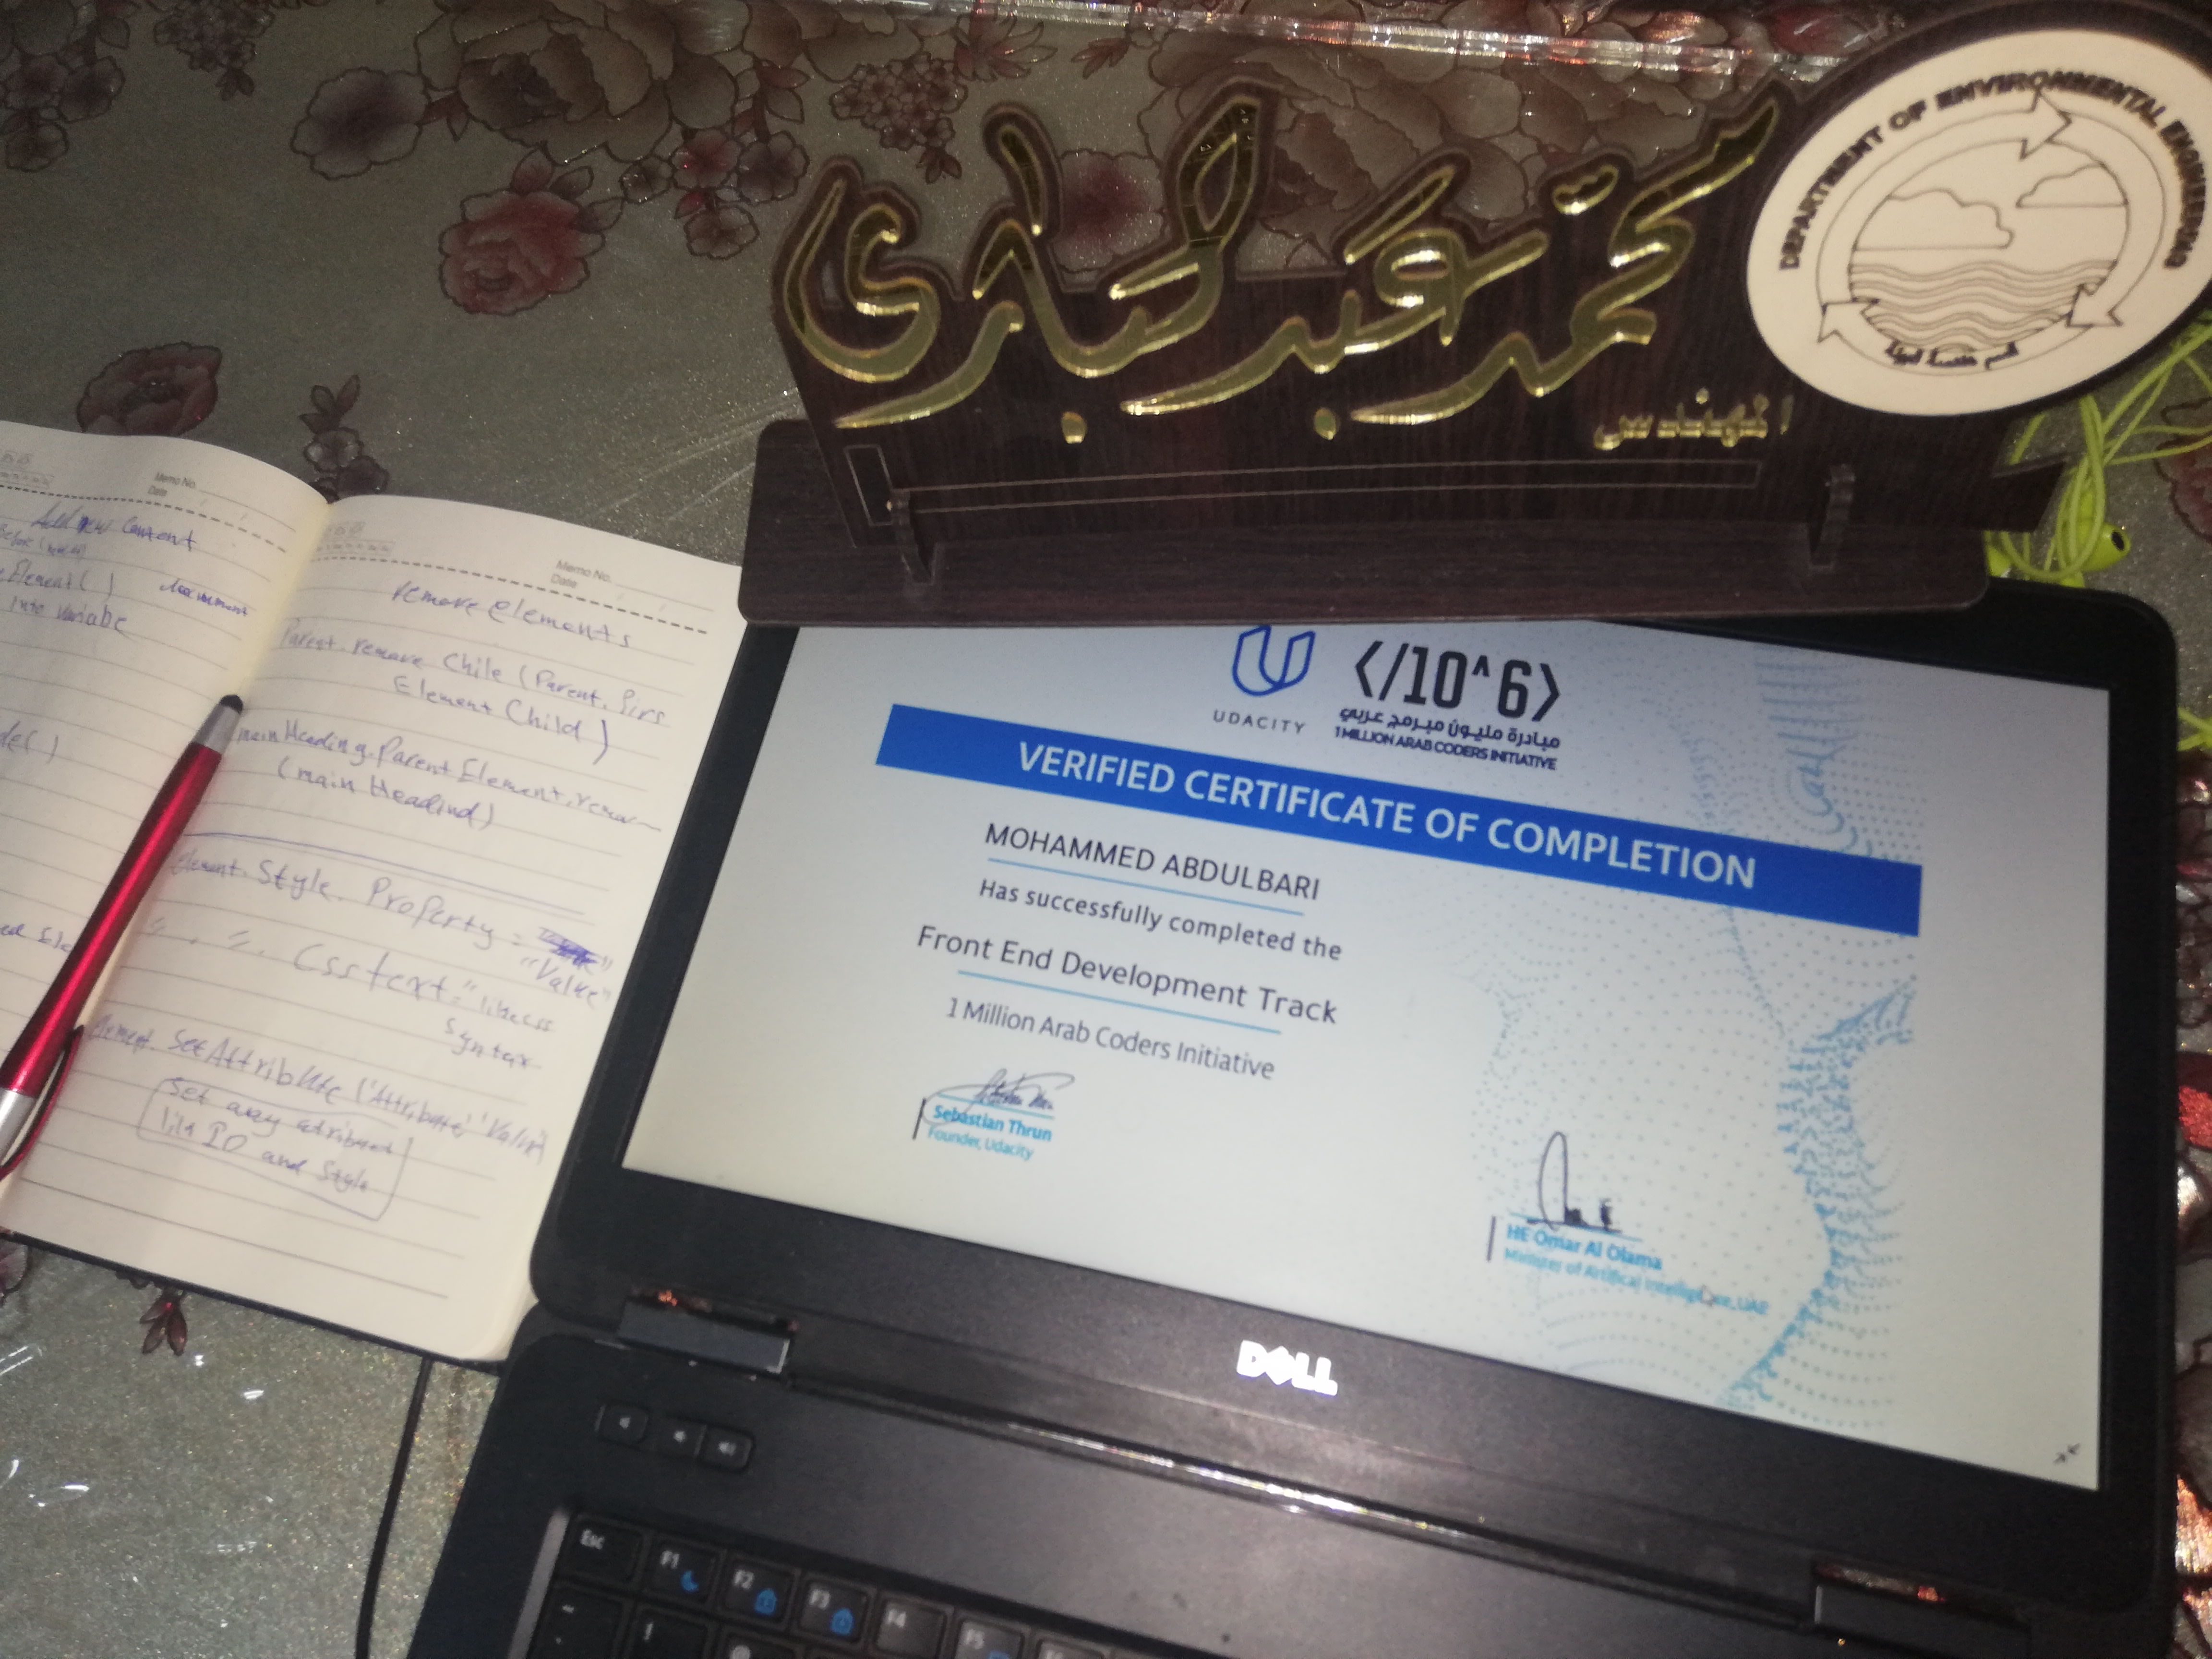 محمد عبدالباري
المهندس
DEPARTMENT OF ENVIRONMENTAL ENGINEERING
قسم هندسة البيئة
Memo No.
Date
Add new content
Element( )
into variabe
Memo No.
Date
remove elements
Parent. remove Chile (Parent. firs
Element Child )
main Heading. Parent Element. remov
(main Headind)
Element. Style. Property =
"Value"
Css text = "like css
syntax
Element. Set Attribute ('Attribute' 'Value')
set any atribuet
like ID and Style
UDACITY
</10^6>
مبادرة مليون مبرمج عربي
1 MILLION ARAB CODERS INITIATIVE
VERIFIED CERTIFICATE OF COMPLETION
MOHAMMED ABDULBARI
Has successfully completed the
Front End Development Track
1 Million Arab Coders Initiative
Sebastian Thrun
Founder, Udacity
HE Omar Al Olama
Minister of Artifical Intelligence, UAE
DELL
Esc
F1
F2
F3
F4
F5